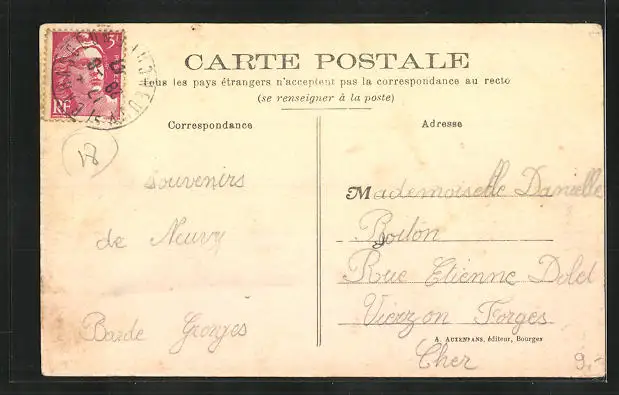 CARTE POSTALE
Tous les pays étrangers n'acceptent pas la correspondance au recto
(se renseigner à la poste)
Correspondance
Adresse
3F
RF
18
souvenirs
de Neuvy
Barde Georges
Mademoiselle Danielle
Boiton
Rue Etienne Dolet
Vierzon Forges
A. AUXENFANS, éditeur, Bourges
Cher
9,-